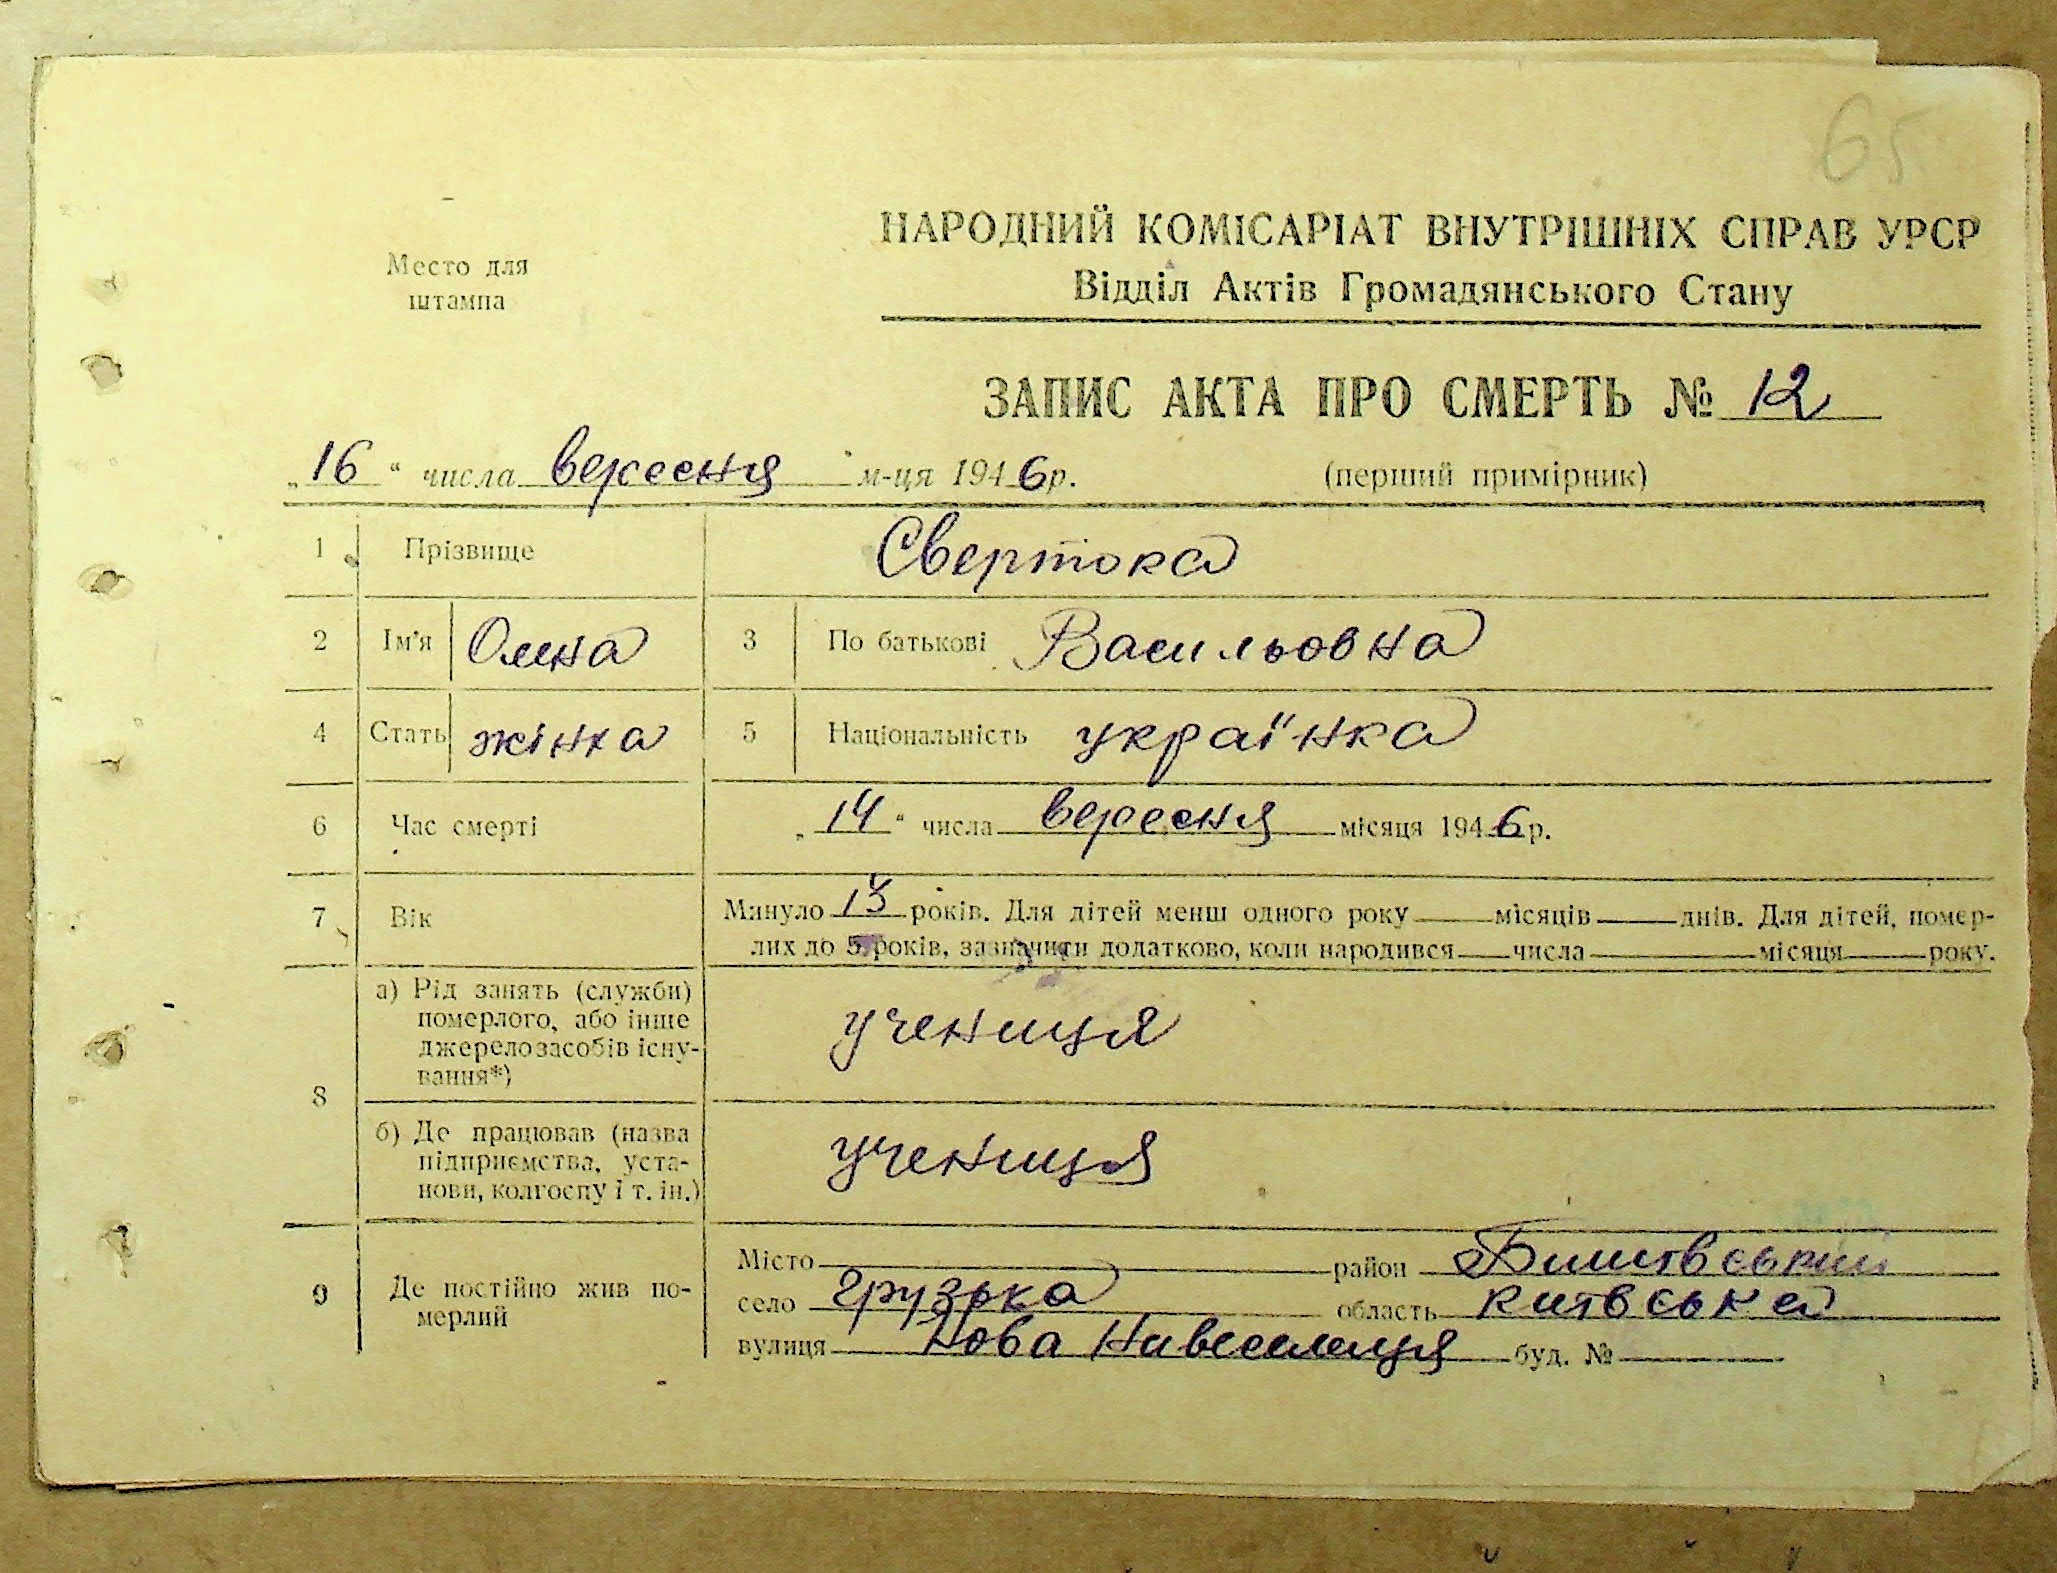 65
НАРОДНИЙ КОМІСАРІАТ ВНУТРІШНІХ СПРАВ УРСР
Место для
штампа
Відділ Актів Громадянського Стану
ЗАПИС АКТА ПРО СМЕРТЬ № 12
„16“ числа вересня м-ця 1946р. (перший примірник)
1 Прізвище Свертока
2 Ім'я Олена 3 По батькові Васильовна
4 Стать жінка 5 Національність українка
6 Час смерті „14“ числа вересня місяця 1946р.
7 Вік Минуло 13 років. Для дітей менш одного року місяців днів. Для дітей, помер-
лих до 5 років, зазначити додатково, коли народився числа місяця року.
8 а) Рід занять (служби)
померлого, або інше
джерело засобів існу-
вання*)
учениця
б) Де працював (назва
підприємства, уста-
нови, колгоспу і т. ін.)
учениця
9 Де постійно жив по-
мерлий
Місто район
село Грузька область
вулиця Нова буд. №